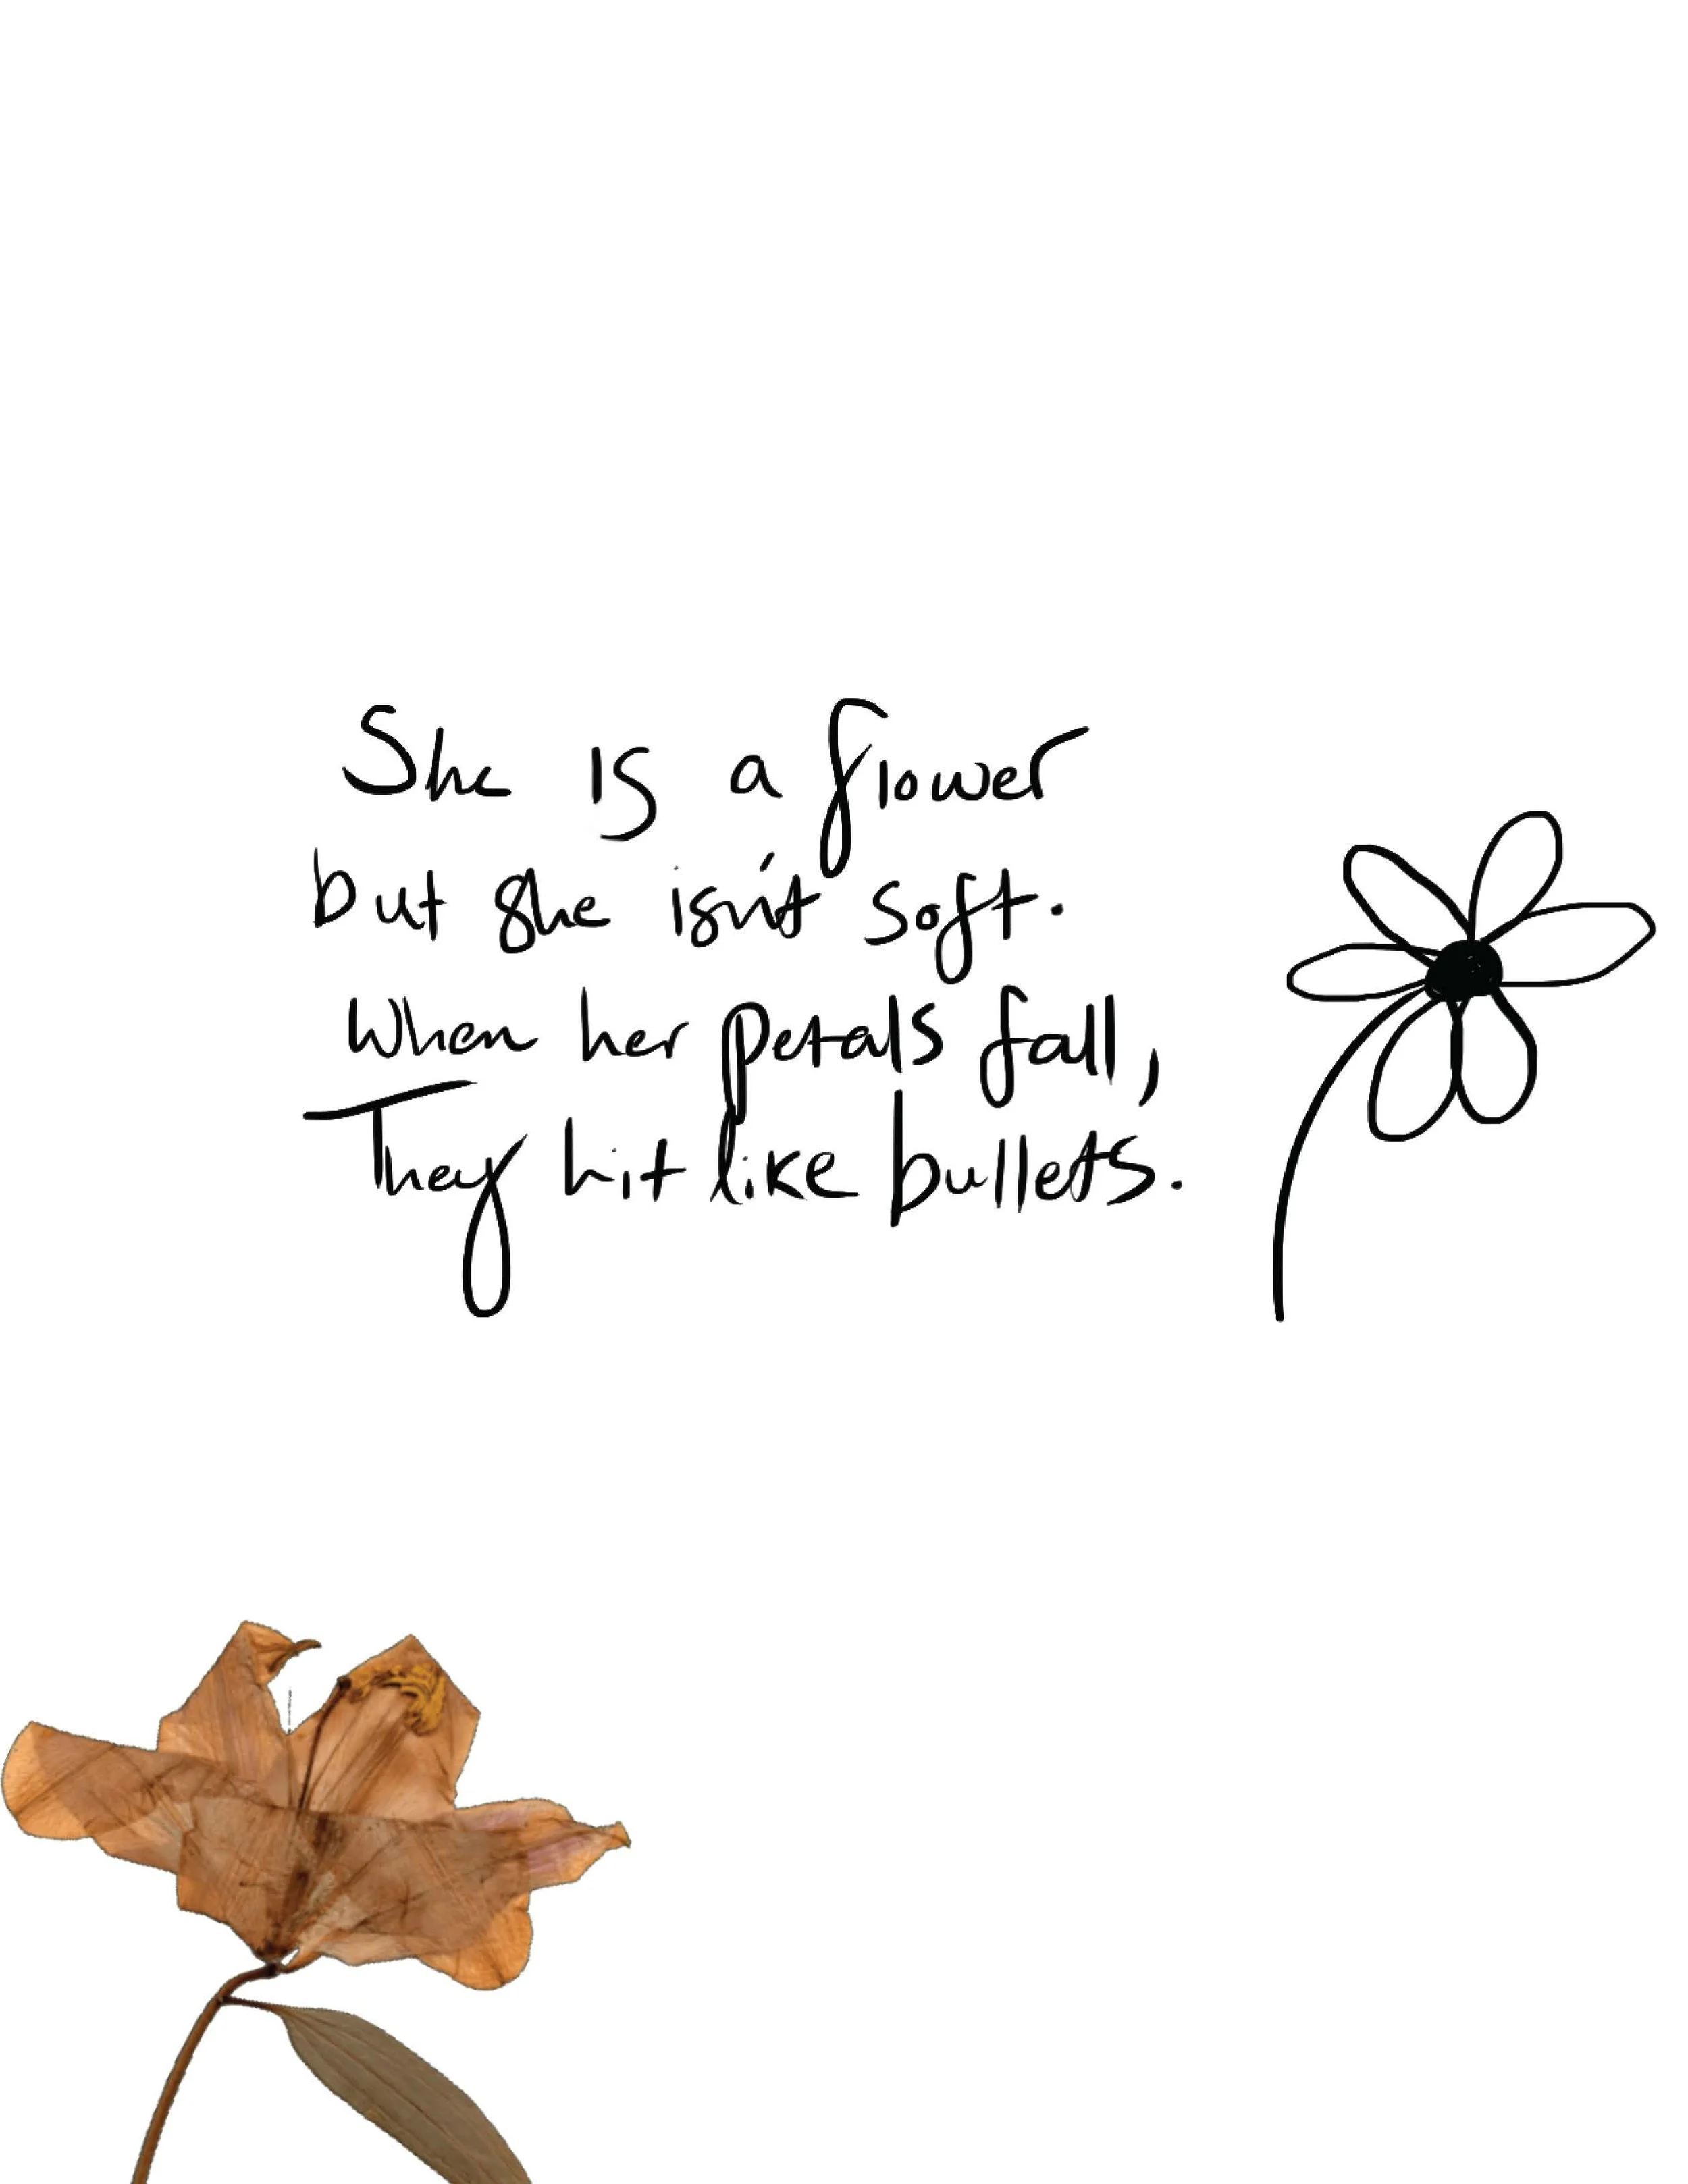 She is a flower
but she isn't soft.
When her petals fall,
They hit like bullets.